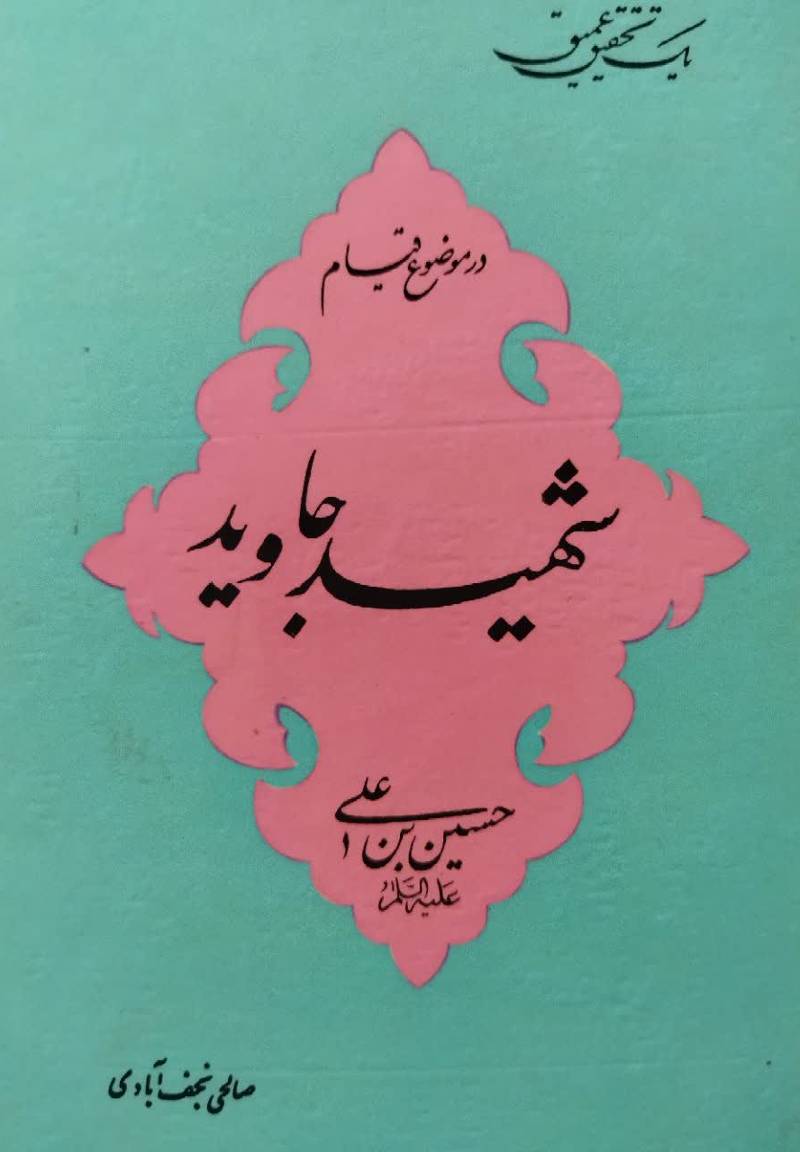 یک تحقیق عمیق
در موضوع قیام
شهید جاوید
حسین بن علی
علیه السلام
صالحی نجف آبادی